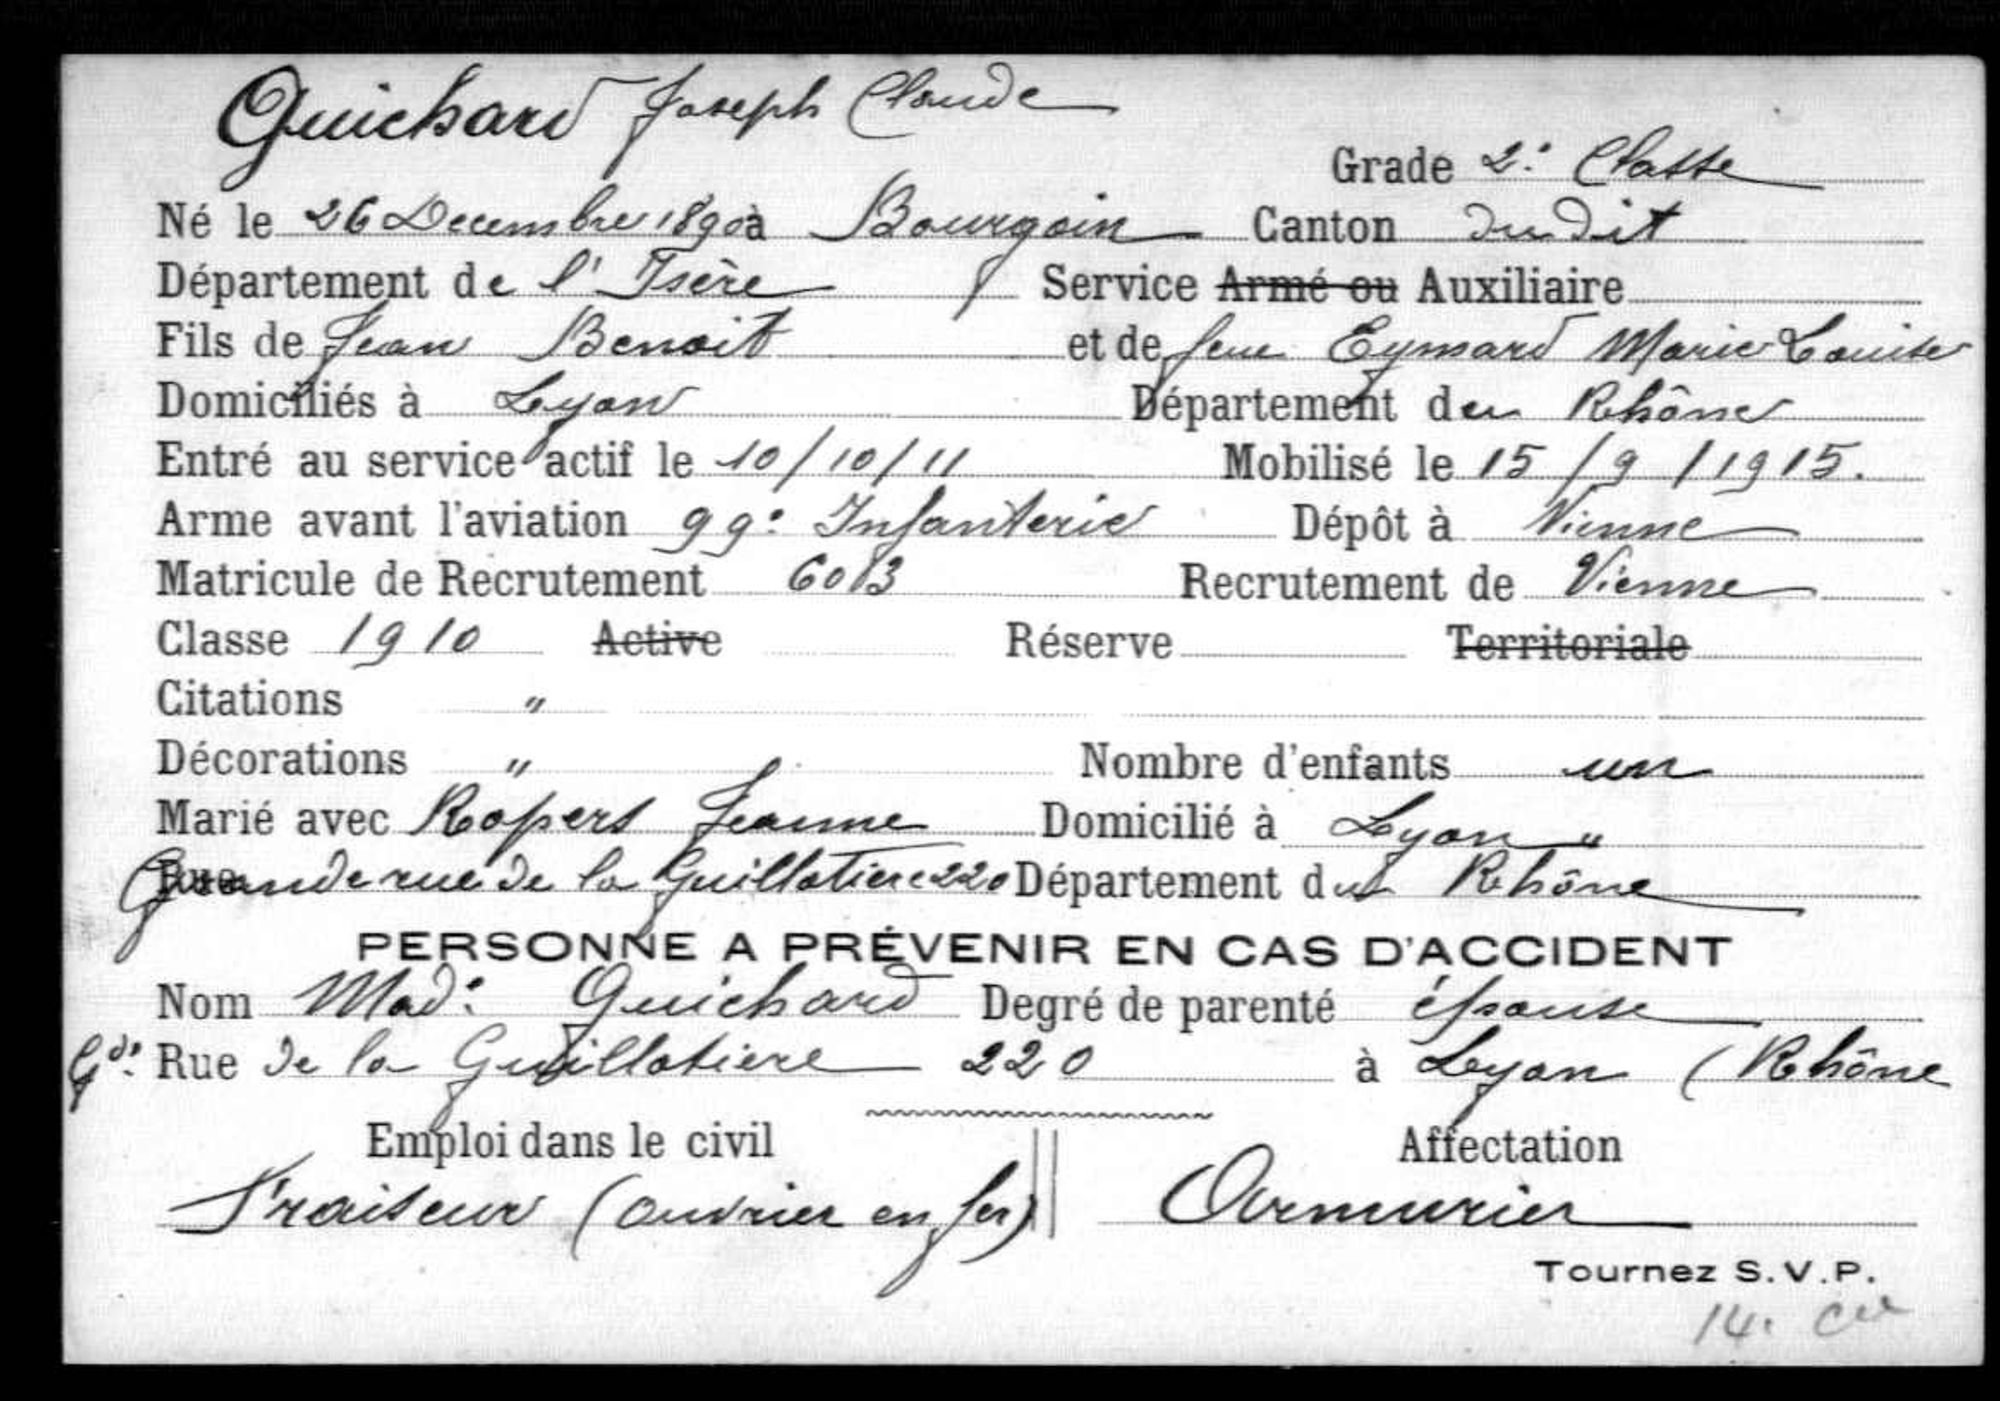 Guichard Joseph Claude
Grade 2e Classe
Né le 26 Decembre 1890 à Bourgoin Canton dudit
Département de l'Isère Service Armé ou Auxiliaire
Fils de Jean Benoit et de feue Eymard Marie Louise
Domiciliés à Lyon Département du Rhône
Entré au service actif le 10/10/11 Mobilisé le 15/9/1915.
Arme avant l'aviation 99e Infanterie Dépôt à Vienne
Matricule de Recrutement 6013 Recrutement de Vienne
Classe 1910 Active Réserve Territoriale
Citations "
Décorations " Nombre d'enfants un
Marié avec Ropers Jeanne Domicilié à Lyon "
Grande rue de la Guillotiere 220 Département du Rhône
PERSONNE A PRÉVENIR EN CAS D'ACCIDENT
Nom Made Guichard Degré de parenté épouse
Gde Rue de la Guillotiere 220 à Lyon (Rhône
Emploi dans le civil Affectation
Fraiseur (ouvrier en fer) Armurier
Tournez S.V.P.
14.